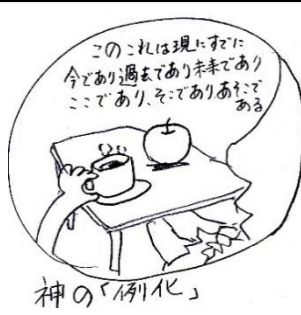 このこれは現にすでに
今であり過去であり未来であり
ここであり、そこでありあそこで
ある
神の「例化」